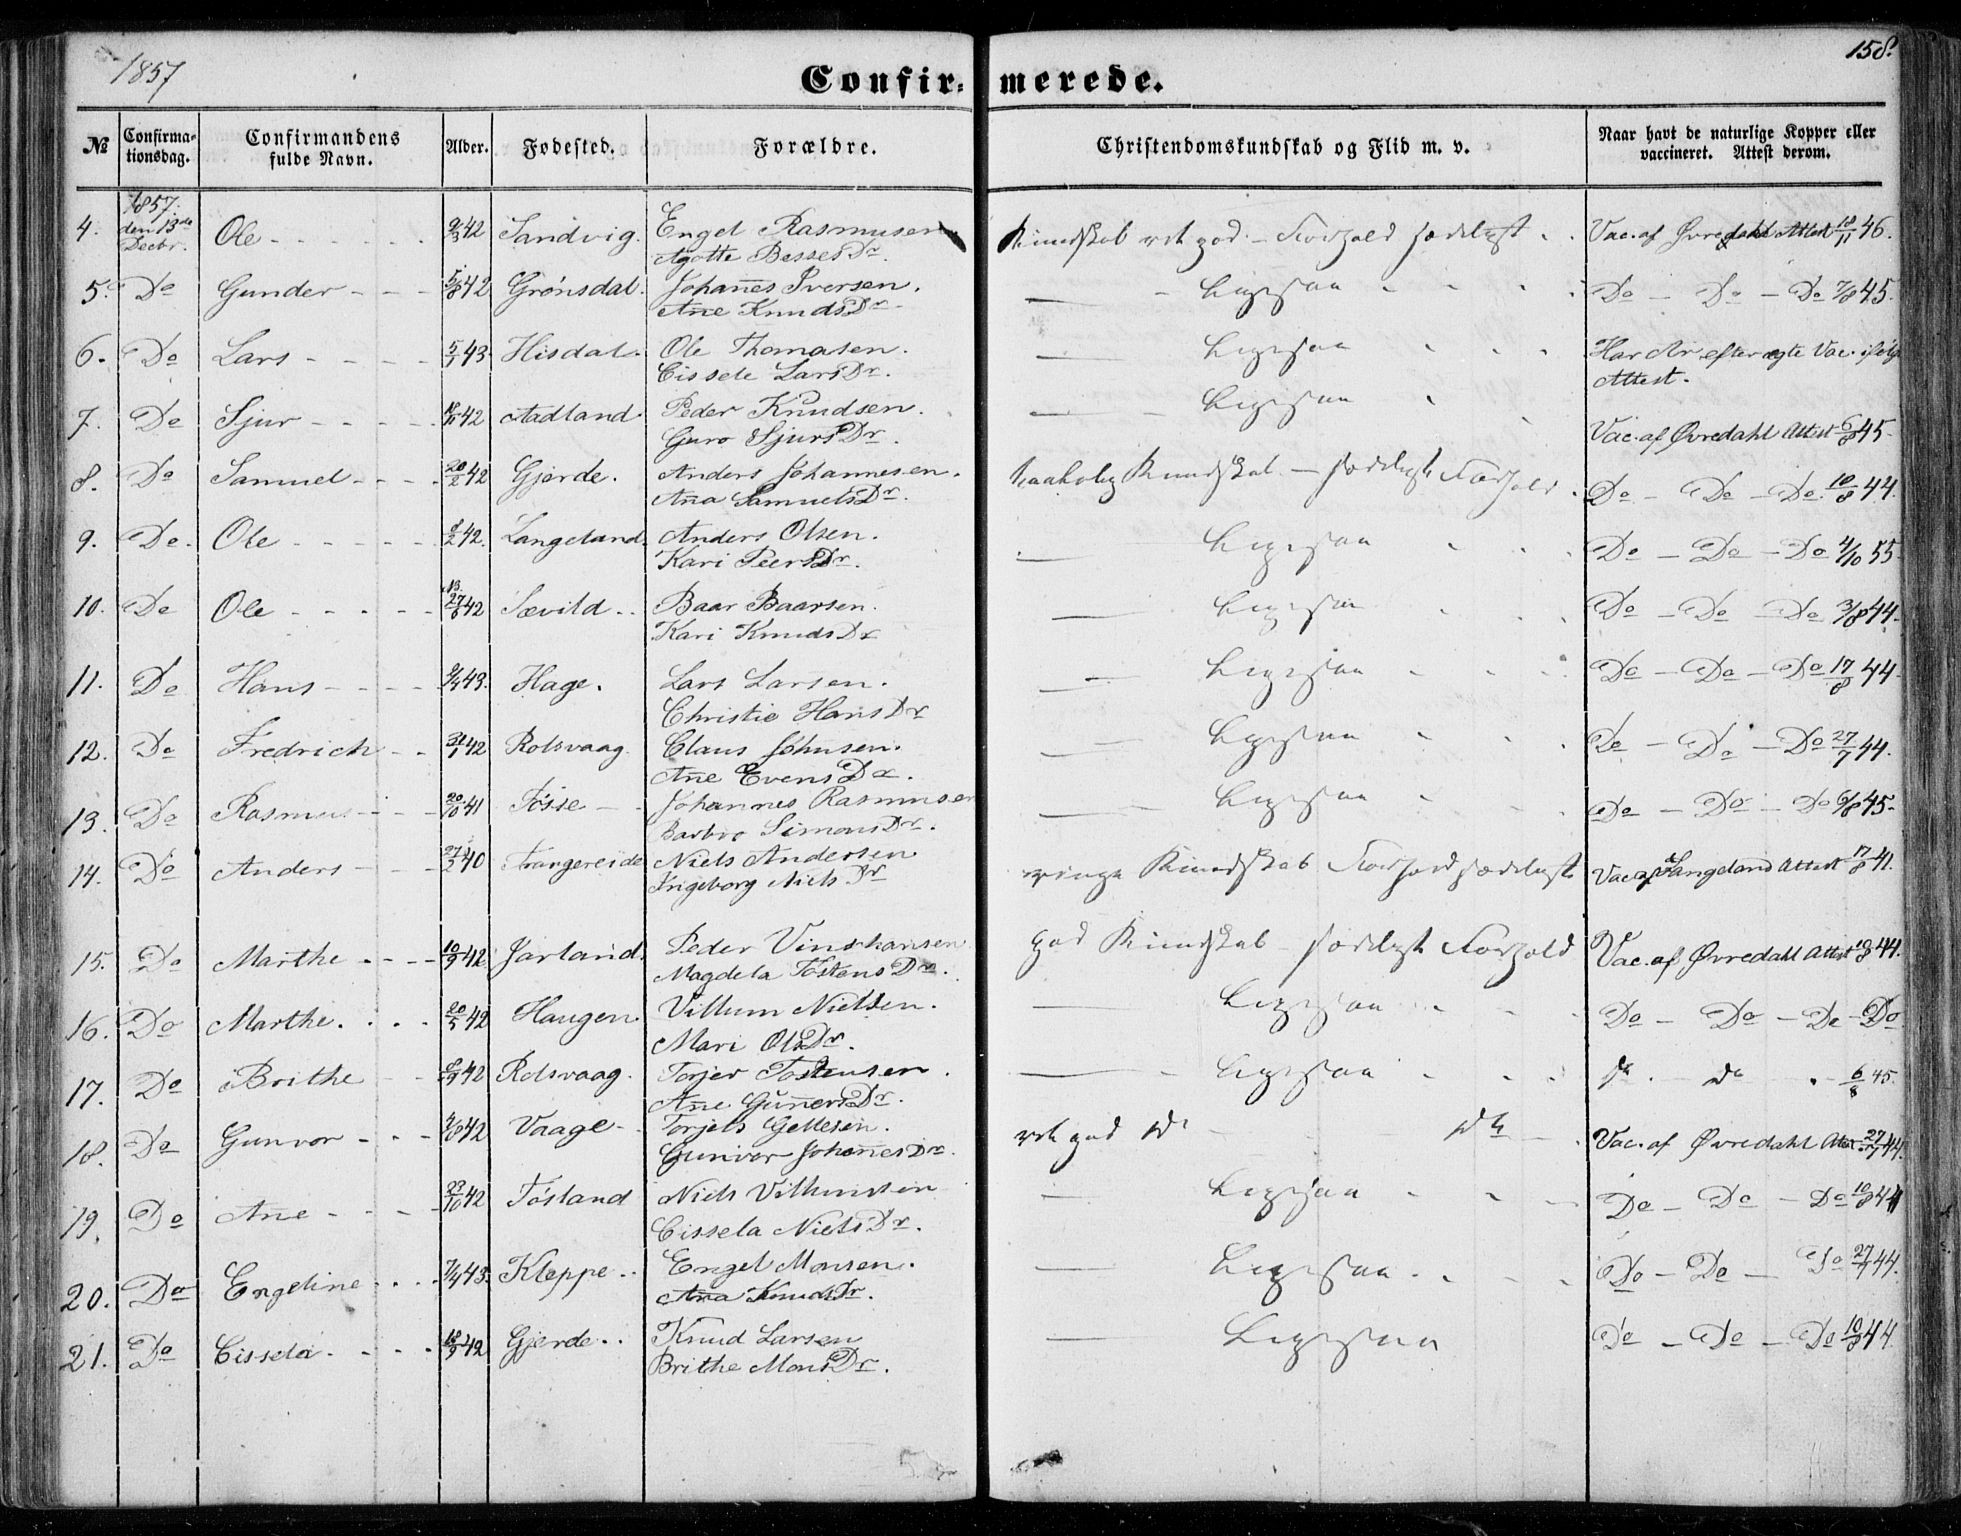 1857
158.
Confir= merede.
№ Confirma=tionsdag. Confirmandens fulde Navn. Alder. Fødested. Forældre. Christendomskundskab og Flid m. v. Naar havt de naturlige Kopper eller vaccineret. Attest derom.
1857.
4. den 13de Decbr. Ole 9/3 42 Sandvig. Engel Rasmusen Kundskab god. – Forhold sædeligt Vac. af Øvredahl Attest 18/11 46.
Agotte Besses Dr.
5. Do Gunder 5/8 42 Grønsdal. Johañes Iversen. Ligesaa Do – Do – Do 7/8 45.
Añe Knuds Dr
6. Do Lars 5/1 43. Hisdal. Ole Thomasen. Ligesaa Har Ar efter ægte Vac. ifølge
Cissele Lars Dr. Attest.
7. Do Sjur 42 Aadland Peder Knudsen. Ligesaa
Guro Sjurs Dr. Vac. af Øvredahl Attest 6/8 45.
8. Do Samuel 20/2 42 Gjerde. Anders Johannesen. Kundskab – sædeligt Forhold. Do – Do – Do. 10/8 44.
Aña Samuels Dr.
9. Do. Ole 42. Langeland. Anders Olsen. Ligesaa Do – Do – Do 4/10 55
Kari Peers Dr.
10. Do Ole 42 Sævild Baar Baarsen. Ligesaa Do – Do – Do 3/8 44.
Kari Knuds Dr
11. Do Hans 43. Hage. Lars Larsen. Ligesaa Do – Do – Do 17/8 44
Christie Hans Dr
12. Do Fredrich 31/1 42 Rolsvaag. Claus Johnsen. Ligesaa Do – Do – Do 27/7 44.
Añe Evens Dr.
13. Do Rasmus 20/10 41 Tösse Johannes Rasmusen Ligesaa Do – Do – Do 6/8 45.
Barbro Simons Dr.
14. Do Anders 27/2 40 Trangereide Niels Andersen ringe Kundskab Forhold sædeligt Vac af Langeland Attest 17/8 41.
Ingeborg Niels Dr
15. Do Marthe 10/9 42 Jarland. Peder Vinshansen god Kundskab – sædeligt Forhold Vac. af Øvredahl Attest 10/8 44.
Magdela Töstens Dr.
16. Do Marthe. 20/5 42 Haugen. Villum Nielsen. Ligesaa Do – Do – Do – Do
Mari Ols Dr.
17. Do Brithe 42 Rolsvaag. Torjer Tostensen. Ligesaa do do 6/8 45.
Añe Guñers Dr.
18. Do Gunvor 42 Vaage Torjels Gellesen. god do do Vac. af Øvredahl Attest 27/7 44.
Gunvor Johañes Dr.
19. Do Añe 23/10 42 Tösland Niels Villumsen Ligesaa Do – Do – Do 10/8 44
Cissela Niels Dr.
20. Do Engeline 7/4 43. Kleppe Engel Monsen. Ligesaa Do – Do – Do 27/7 44.
Aña Knuds Dr.
21. Do Cissela 18/9 42 Gjerde Knud Larsen Ligesaa Do – Do – Do 10/8 44
Brithe Mons Dr.